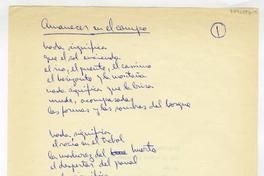 Amanecer en el campo
1
Nada significa
que el sol encienda
el río, el puente, el camino
el horizonte y la montaña
nada significa que la brisa
mude, acompasadas
las formas y las sombras del bosque
Nada significa
el rocío en el trébol
la madurez del huerto
el despertar del panal